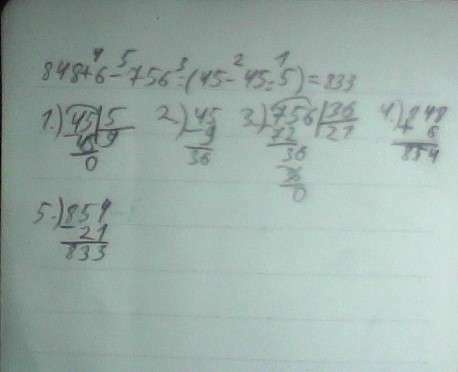 4 5 3 2 1
848+6-756:(45-45:5)=833
1.) 45|5 2.) 45 3.) 756|36 4.) 848
45 9 - 9 72 21 + 6
0 36 36 854
36
0
5.) 854
- 21
833